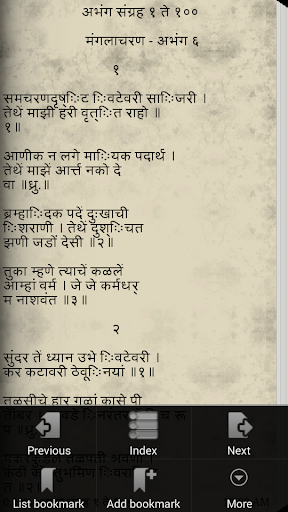 अभंग संग्रह १ ते १००
मंगलाचरण - अभंग ६
१
समचरणदृष्टि विटेवरी साजिरी ।
तेथें माझी हरी वृत्ति राहो ॥
१॥
आणीक न लगे मायिक पदार्थ ।
तेथें माझें आर्त्त नको दे
वा ॥ध्रु.॥
ब्रम्हादिक पदें दुःखाची
शिराणी । तेथें दुश्चित
झणी जडों देसी ॥२॥
तुका म्हणे त्याचें कळलें
आम्हां वर्म । जे जे कर्मधर्
म नाशवंत ॥३॥
२
सुंदर तें ध्यान उभे विटेवरी ।
कर कटावरी ठेवूनियां ॥१॥
तुळसीचे हार गळां कासे पी
Previous
Index
Next
List bookmark
Add bookmark
More